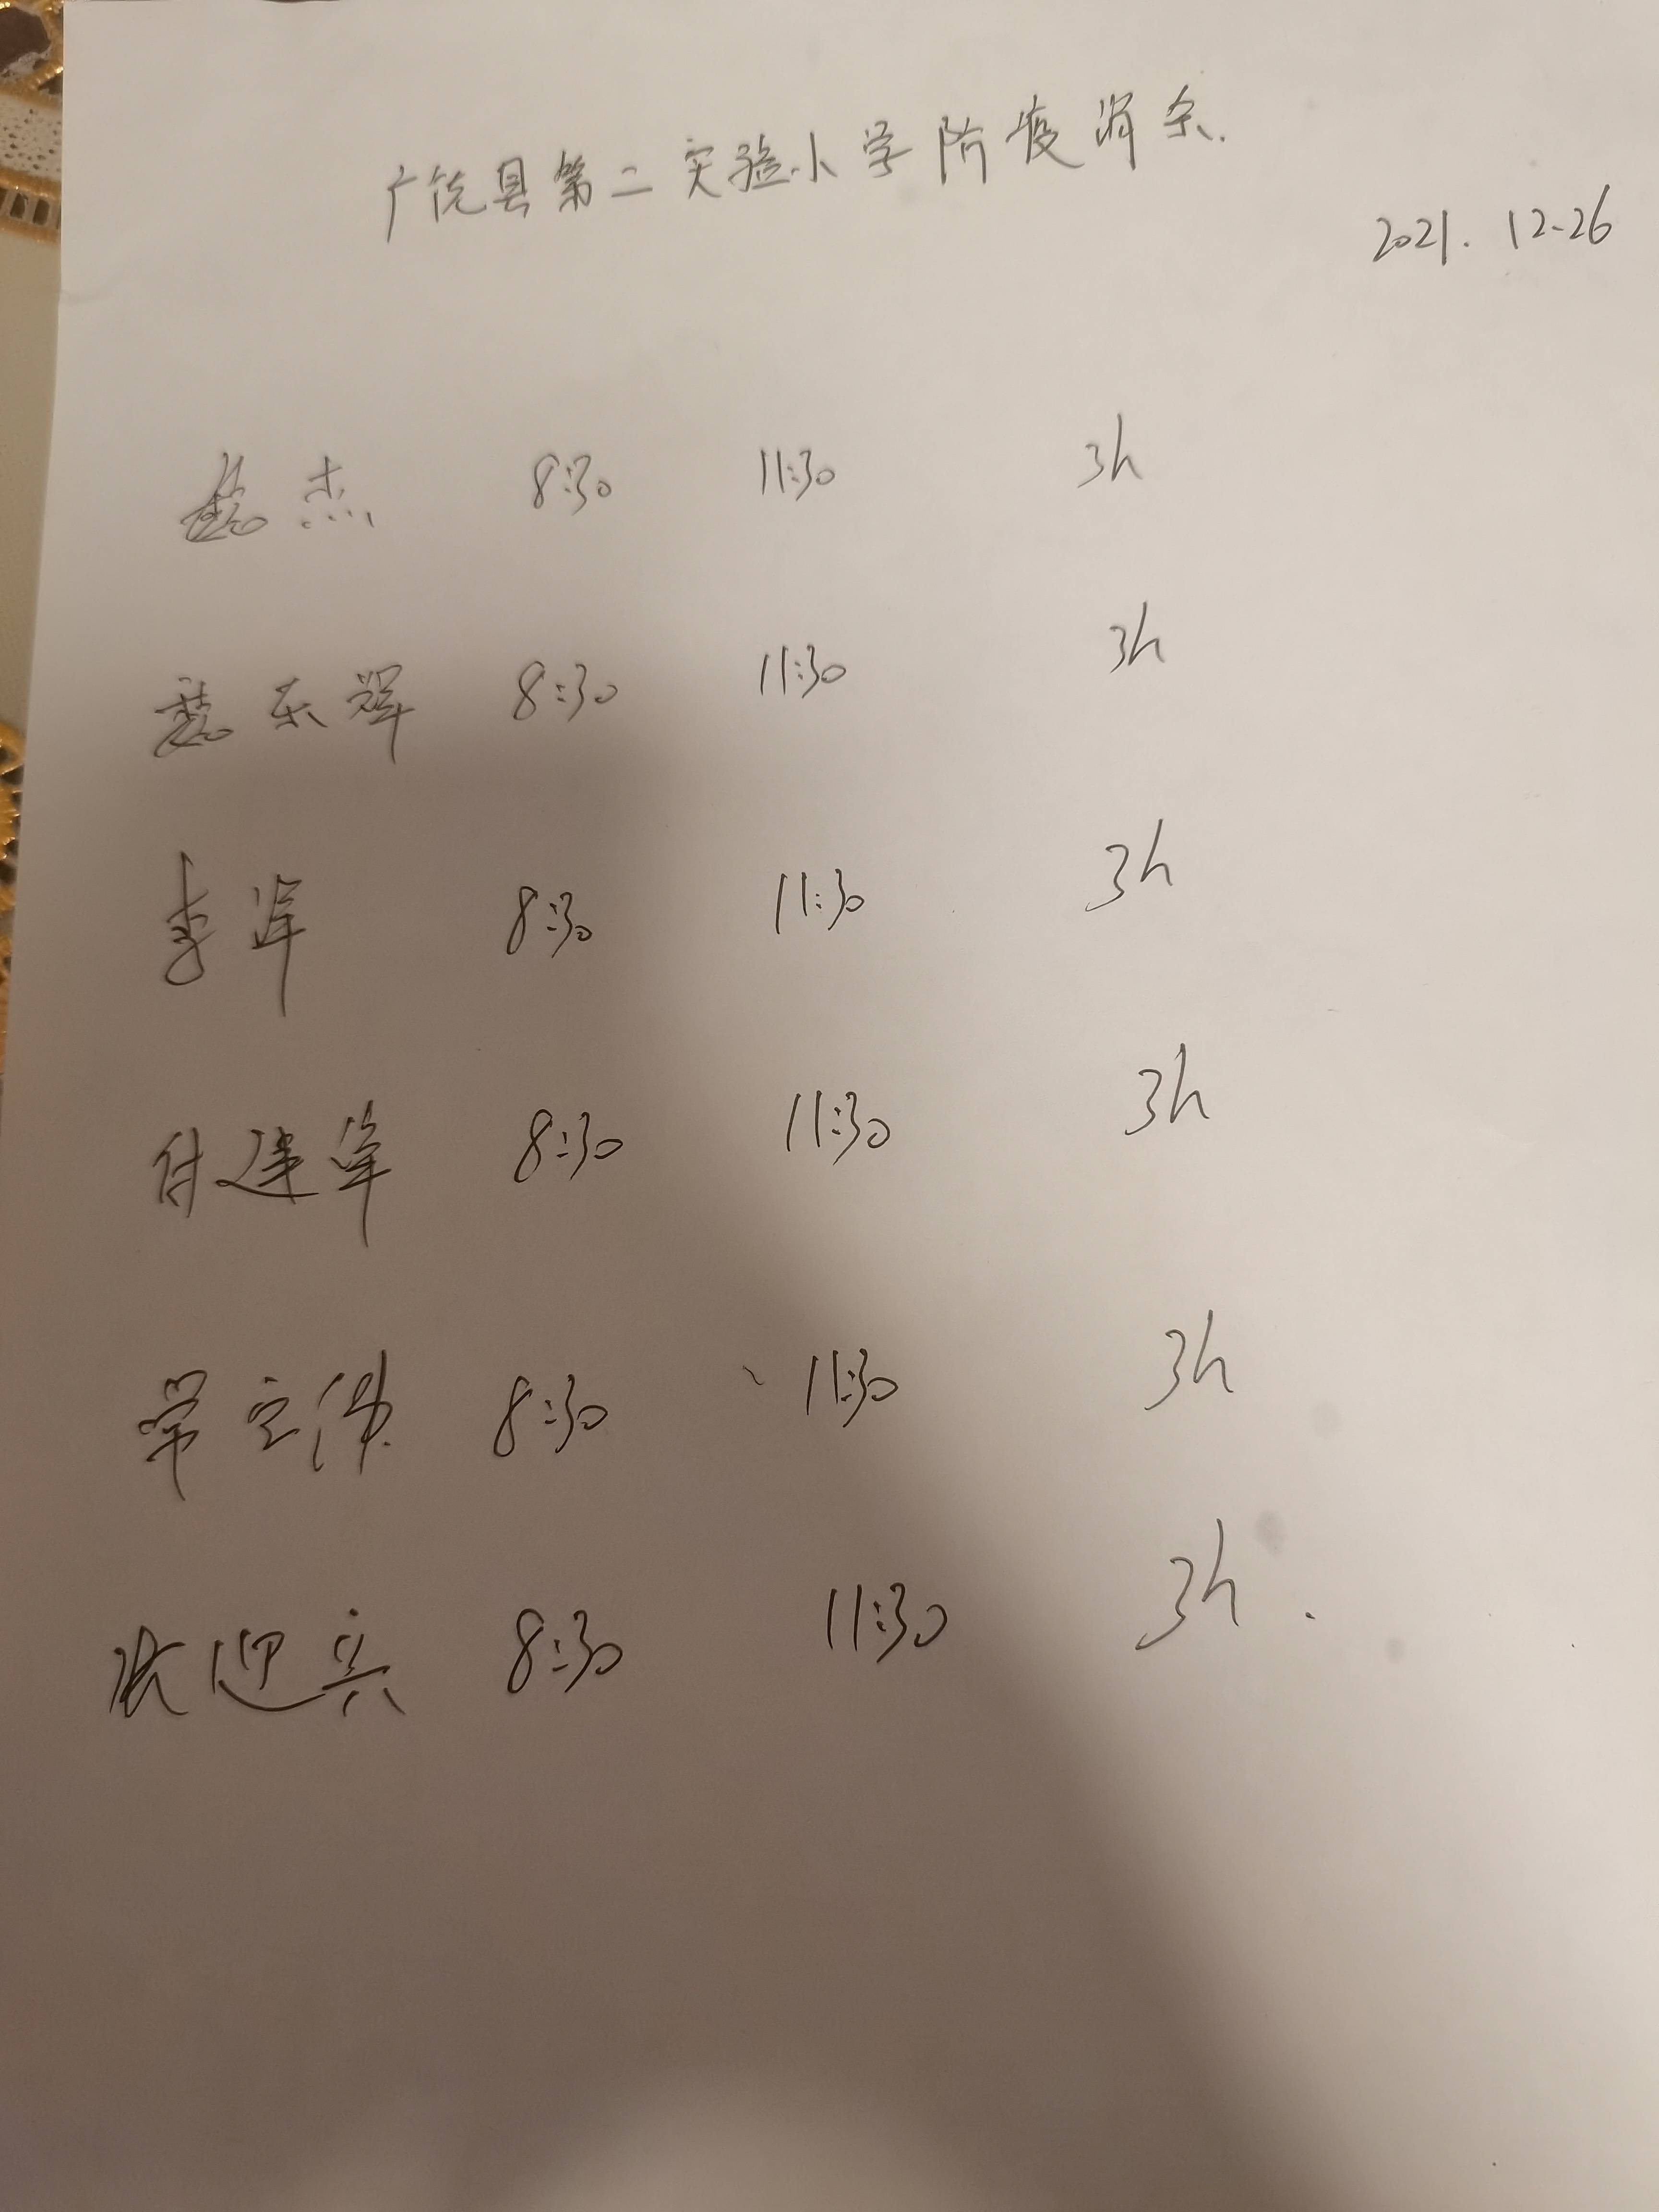 广饶县第二实验小学防疫消杀.
2021.12.26
杰 8:30 11:30 3h
东辉 8:30 11:30 3h
李 8:30 11:30 3h
付建军 8:30 11:30 3h
常立伟 8:30 11:30 3h
张迎兵 8:30 11:30 3h.